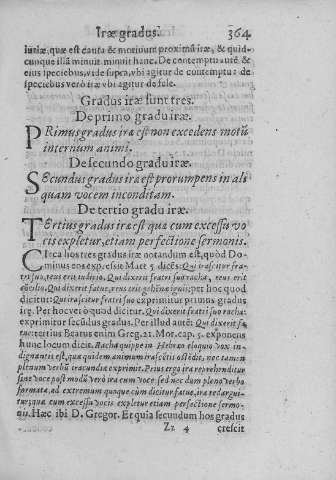 Iræ gradus. 364
iuriæ, quæ est causa & motiuum proximũ iræ, & quid-
cunque illã minuit minuit hanc. De contemptu autẽ &
eius speciebus, vt de supra, vbi agitur de contemptu: de
speciebus verò iræ vbi agitur de
Gradus iræ sunt tres.
De primo gradu iræ.
PRimus gradus iræ est non excedens motũ
internum animi.
De secundo gradu iræ.
SEcundus gradus iræ est prorumpens in ali
quam vocem inconditam.
De tertio gradu iræ.
TErtius gradus iræ est quæ cum excessu vo
cis expletur, etiam perfectione sermonis.
CIrca hos tres gradus iræ notandum est, quòd Do-
minus eos exp̃resse Matt 5 dicẽs: Qui irascitur fra-
tri suo, reus erit iudicio. Qui dixerit fratri suo racha, reus erit
cõcilio. Qui dixerit fatue, reus erit gehẽnæ ignis; per hoc quod
dicitur: Qui irascitur fratri suo exprimitur primus gradus
iræ. Per hoc verò quod dicitur. Qui dixerit fratri suo racha:
exprimitur secundus gradus. Per illud autẽ: Qui dixerit fatue,
tertius Beatus enim Greg. 21. Mor. cap. 5. exponens
hunc locum dicit. Racha quippe in Hebræo eloquio vox in-
dignantis est, quæ quidem animum irascẽtis ostẽdit, nec tamen
plenum verbũ iracundiæ exprimit. Prius ergo ira reprehenditur
sine voce post modũ verò ira cum voce: sed nec dum pleno verbo
formata, ad extremum quoque cùm dicitur fatue, ira redargui-
tur, quæ cum excessu vocis expletur etiam perfectione sermo-
nis. Hæc ibi D. Gregor. Et quia secundum hos gradus
Zz 4 crescit